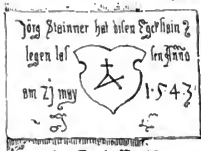 Jörg Stainner hat disen Egcksain
legen las sen Anno
am 21 may 1543